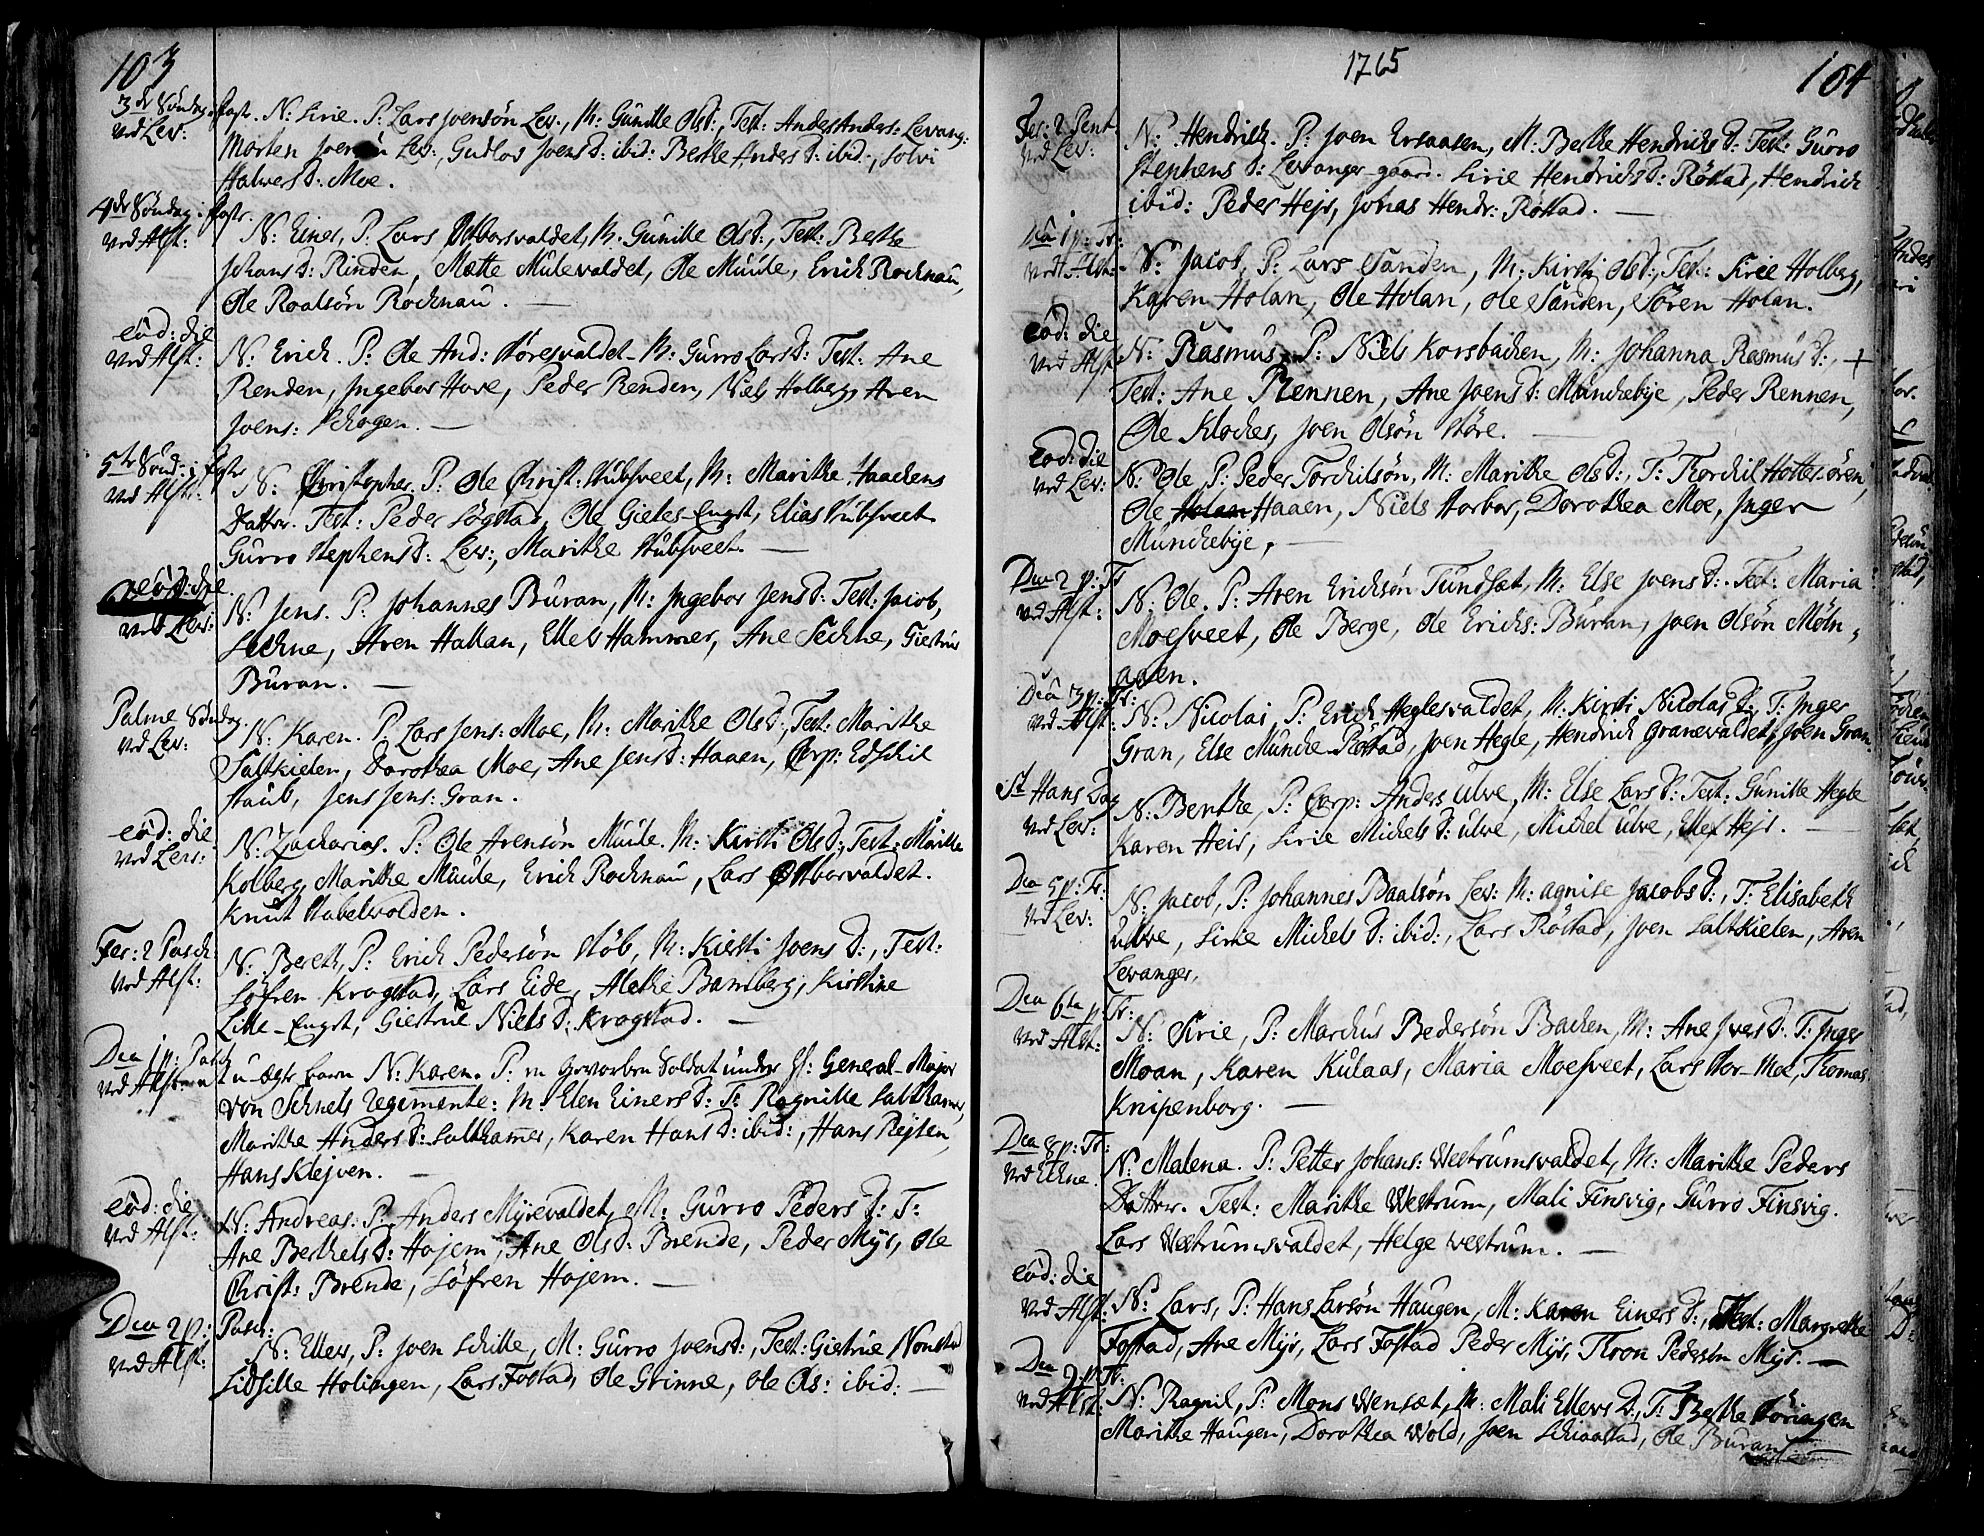 103
3de Söndag i Fast. N: Sirie. P: Lars Joensön Lev., M: Gunille Olsd:, Test: Anders Anders: Levang:
ved Lev: Morten Joensön Lev:, Gudlos Joens D: ibid: Berthe Anders D: ibid:, Solvi
Halvers D: Moe.
4de Söndag i Faste.
ved Alst: N: Einer, P: Lars Østborsvaldet, M: Gunille Olsd:, Test: Berthe
Johans D: Rinden, Mætte Mulevaldet, Ole Muule, Erich Rochnau,
Ole Roalsön Rochnau. —
eod: die
ved Alst: N: Erich. P: Ole And: Storesvaldet. M: Gurro Lars D: Test: Ane
Renden, Ingebor Hove, Peder Renden, Niels Holberg, Aren
Joens: Schogen. —
5te Sönd: i Faste
ved Alst: N: Christopher. P: Ole Christ: Stubsveet, M: Marithe Haachens
Datter. Test: Peder Søgstad, Ole Gieles-Engst, Elias Stubsveet
Gurro Stephens D: Lev:, Marithe Stubsveet. —
eod: die
ved Lev: N: Jens. P: Johannes Buran, M: Ingebor Jens D: Test: Jacob
Sechne, Aren Hallan, Ellev Hammer, Ane Sechne, Giestrue
Buran. —
Palme Söndag.
ved Lev: N: Karen. P: Lars Jens: Moe, M: Marithe Ols D:, Test: Marithe
Saltkielen, Dorothea Moe, Ane Jens D: Haaen, Corp: Edschil
Staub, Jens Jens: Gran.
eod: die
ved Lev: N: Zacharias. P: Ole Arensön Muule. M: Kirsti Ols D:, Test: Marithe
Kolberg, Marithe Muule, Erich Rochnau, Lars Østborvaldet.
Knut Stabelvolden.
Fer: 2 Pasch:
ved Alst: N: Bereth, P: Erich Pedersön Støb, M: Kirsti Joens D:, Test:
Söfren Kragstad, Lars Eide, Alethe Bamberg, Kirstine
Lille-Engst, Giestrue Niels D: Kragstad. —
Dca 1 p: Pasch
ved Alst: u-ægte barn N: Karen. P: en Gevorben Soldat under H: General-Major
von Schnels Regimente: M: Elen Einers D: T: Ragnille Salthamer,
Marithe Anders D: Salthamer, Karen Hans D: ibid:, Hans Rejsen,
Hans Klejven. —
eod: die
ved Alst: N: Andreas: P: Anders Myrevaldet, M: Gurro Peders D: T:
Ane Berthels D: Hojem, Ane Ols D: Brende, Peder Myr, Ole
Christ: Brende, Söfren Hojem. —
Dca 2 p: Pasc:
ved Alst: N: Ellev, P: Joen Schille, M: Gurro Joens D:, Test: Giestrue Nonstad
Sidsille Holingen, Lars Fostad, Ole Grinne, Ole Ols: ibid: —
1765
104
Fer: 2 Pent
ved Lev: N: Hendrich. P: Joen Ersaasen, M: Berthe Hendrichs D: Test: Gurro
Stephens D: Levanger-gaard. Sirie Hendrichs D: Röstad, Hendrich
ibid: Peder Hejr, Johas Hendr: Röstad. —
Dca 1 p: Tr:
ved Alst: N: Jacob, P: Lars Sanden, M: Kirsti Ols D:, Test: Sirie Holberg,
Karen Holan, Ole Holan, Ole Sanden, Sören Holan.
eod: die
ved Alst N: Rasmus, P: Niels Korsbachen, M: Johanna Rasmus D:, +
Test: Ane Rennen, Ane Joens D: Munchebye, Peder Rennen,
Ole Klocher, Joen Olsön Störe. —
eod: die
ved Lev: N: Ole, P: Peder Torchilsön, M: Marithe Ols D:, T: Torchil Hotter-ören,
Ole Holan Haaen, Niels Horbor, Dorothea Moe, Inger
Munchebye, —
Dca 2 p: Tr
ved Alst: N: Ole. P: Aren Erichsön Tundsæt, M: Else Joens D: Test: Maria
Moesveet, Ole Berge, Ole Erichs: Buran, Joen Olsön Möln-
aaen.
Dca 3 p: Tr:
ved Alst: N: Nicolai, P: Erich Heglesvaldet, M: Kirsti Nicolas D:, T: Inger
Gran, Else Munche-Röstad, Joen Hegle, Hendrich Granevaldet, Joen Gran
St Hans Dag
ved Lev: N: Benthe, P: Corp: Anders Ulve, M: Else Lars D: Test: Gunille Hegle
Karen Heir, Sirie Michels D: Ulve, Michel Ulve, Ellef Hejr. —
Dca 5 p: Tr:
ved Lev: N: Jacob, P: Johannes Paalsön Lev: M: Agnise Jacobs D:, T: Elisabeth
Ulve, Sirie Michels D: ibid:, Lars Röstad, Joen Saltkielen, Aren
Levanger.
Dca 6ta p: Tr:
ved Alst: N: Sirie, P: Marchus Pedersön Bachen, M: Ane Ivers D: T: Inger
Moan, Karen Kulaas, Maria Moesveet, Lars Stor-Moe, Thomas
Knipenborg. —
Dca 8 p: Tr:
ved Ekne. N: Malena. P: Petter Johans: Westrumsvaldet, M: Marithe Peders
Datter. Test: Marithe Westrum, Mali Finsvig, Gurro Finsvig.
Lars Westrumsvaldet, Helge Westrum. —
eod: die
ved Alst: N: Lars, P: Hans Larsön Haugen, M: Karen Einers D:, Test: Margrethe
Fostad, Ane Myr, Lars Fostad Peder Myr, Thron Pedersön Myr. —
Dca 9 p: Tr:
ved Alst: N: Ragnil, P: Mons Wensæt, M: Mali Ellevs D:, T: Berthe Töringen
Marithe Haugen, Dorothea Wold, Joen Schiaastad, Ole Buran